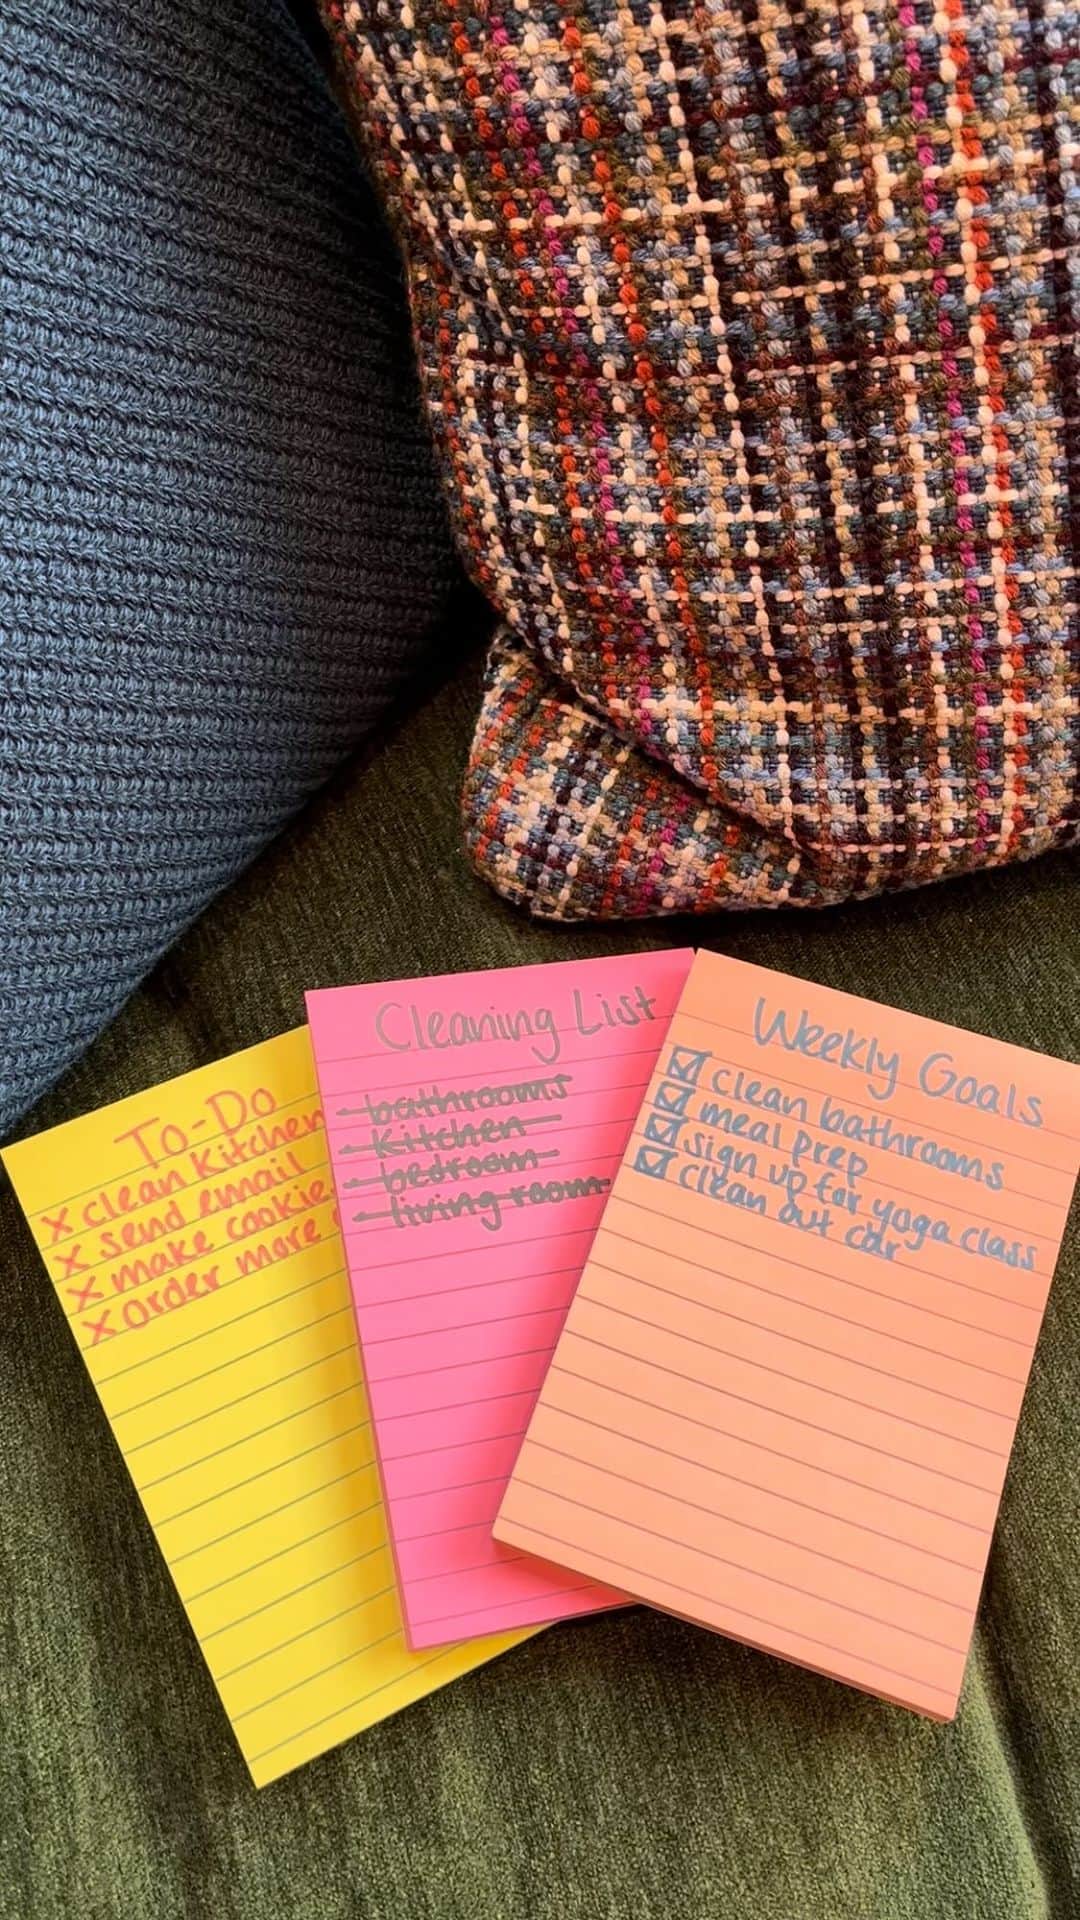 To-Do
x clean kitchen
x send email
x make cookie
x order more
Cleaning List
- bathrooms
- Kitchen
- bedroom
- living room
Weekly Goals
☑ clean bathrooms
☑ meal prep
☑ sign up for yoga class
☑ clean out car